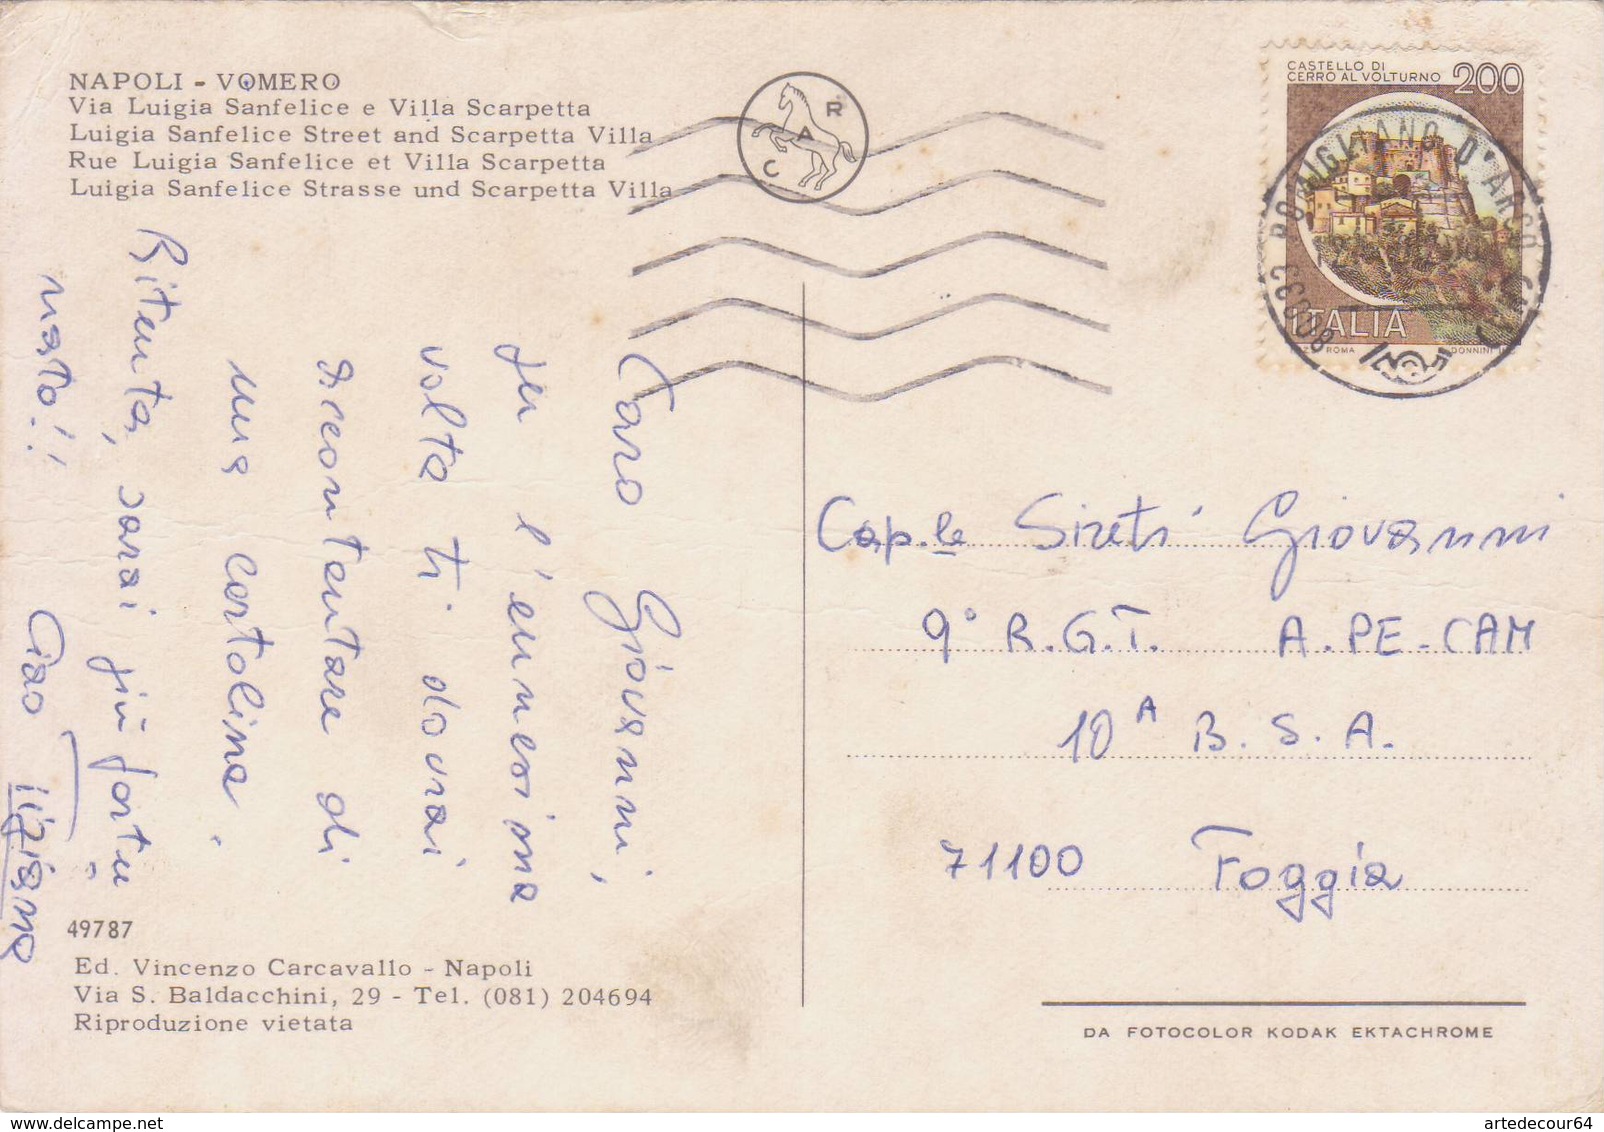 NAPOLI - VOMERO
Via Luigia Sanfelice e Villa Scarpetta
Luigia Sanfelice Street and Scarpetta Villa
Rue Luigia Sanfelice et Villa Scarpetta
Luigia Sanfelice Strasse und Scarpetta Villa
C A R
CASTELLO DI
CERRO AL VOLTURNO 200
ITALIA
ROMA DONNINI
80038 POMIGLIANO D'ARCO
Caro Giovanni,
per l'ennesima
volta ti dovrai
accontentare di
una cartolina.
Ritenta, sarai più fortu
nato!!
Ciao Tiziana
Cap.le Sireti Giovanni
9° R.G.T. A.PE-CAM
10ᴬ B.S.A.
71100 Foggia
49787
Ed. Vincenzo Carcavallo - Napoli
Via S. Baldacchini, 29 - Tel. (081) 204694
Riproduzione vietata
DA FOTOCOLOR KODAK EKTACHROME
artedecour64